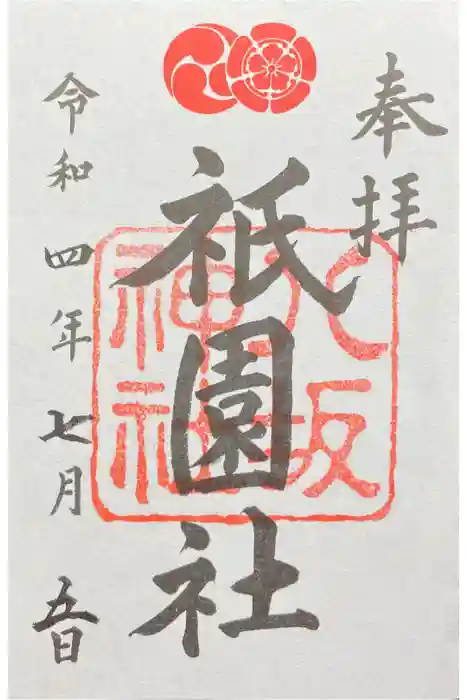 奉拝
祇園社
八坂
神社
令和四年七月五日